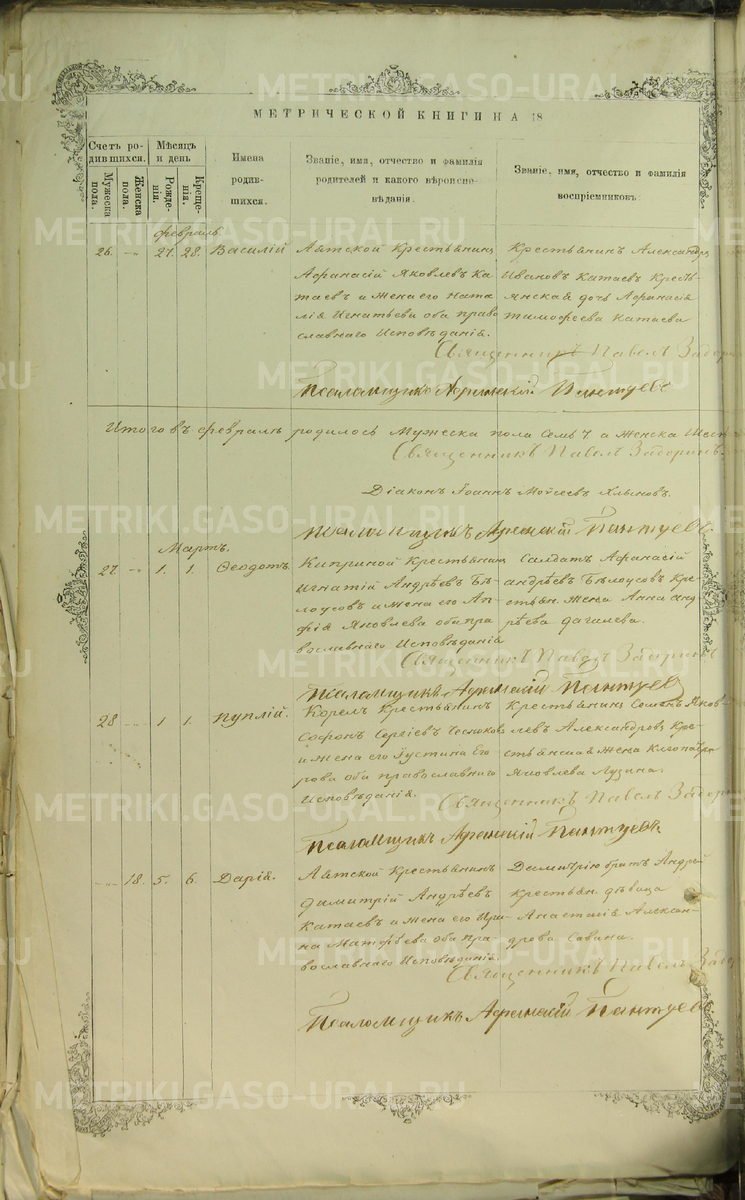 МЕТРИЧЕСКОЙ КНИГИ НА 18
Счетъ ро-
дившихся.
Мѣсяцъ
и день
Мужеска
пола.
Женска
пола.
Рожде-
нія.
Креще-
нія.
Имена
родив-
шихся.
Званіе, имя, отчество и фамилія
родителей и какого вѣроиспо-
вѣданія.
Званіе, имя, отчество и фамилія
воспріемниковъ.
февраль
26. 27. 28. Василій
Аятской Крестьянинъ
Афанасій Яковлевъ Ка-
таевъ и жена его Ната-
лія Игнатьева оба право
славнаго Исповѣданія.
Крестьянинъ Александръ
Ивановъ Катаевъ Кресть-
янская дочь Афанасія
тимофеева Катаева
Священникъ Павелъ
Псаломщикъ
Итого въ февралѣ родилось Мужеска пола Семь 7 а Женска
Священникъ Павелъ
Діаконъ Іоаннъ Мойсеевъ Хлыновъ.
Псаломщикъ
Мартъ.
27. 1. 1. Ѳеодотъ.
Крестьянинъ
Игнатій Андрѣевъ Бѣ-
лоусовъ и жена его
Яковлева оба пра
вославнаго Исповѣданія
Солдатъ Афанасій
андрѣевъ Бѣлоусовъ Кре-
стьян. жена Анна Анд
рѣева
Священникъ Павелъ
Псаломщикъ
28 1 1. Пуплій.
Крестьянинъ
Софонъ Сергіевъ
и жена его Иустина Его
рова оба православнаго
Исповѣданія.
Крестьянинъ Семенъ Яков-
левъ Александровъ Кре-
стьянская жена Клеопатра
Яковлева Лузина.
Священникъ Павелъ
Псаломщикъ
18. 5. 6. Дарія.
Аятской Крестьянинъ
димитрій Андрѣевъ
Катаевъ и жена его Ири-
на Матфѣева оба пра-
вославнаго Исповѣданія.
Димитрію братъ Андрей
Крестьян. дѣвица
Анастасія Алексан-
дрова Савина.
Священникъ Павелъ
Псаломщикъ
METRIKI.GASO-URAL.RU